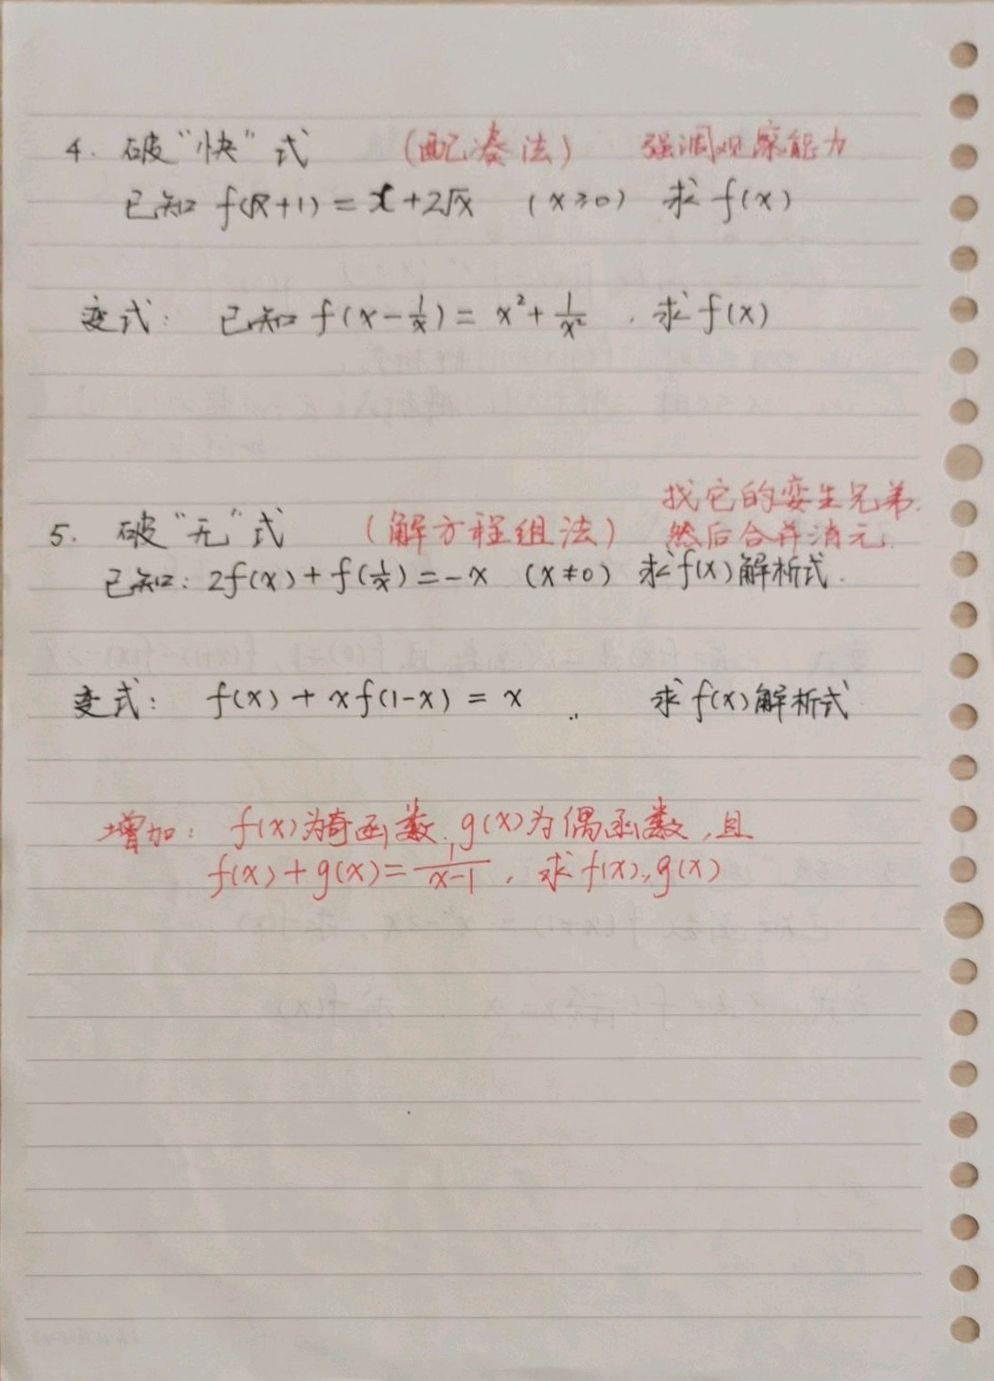 4. 破“快”式 (配凑法) 强调观察能力
已知 f(√x+1) = x+2√x (x≥0) 求 f(x)
变式: 已知 f(x-1/x) = x²+1/x² . 求 f(x)
找它的孪生兄弟.
5. 破“无”式 (解方程组法) 然后合并消元.
已知: 2f(x)+f(1/x)=-x (x≠0) 求 f(x) 解析式.
变式: f(x)+xf(1-x) = x 求 f(x) 解析式
增加: f(x)为奇函数, g(x)为偶函数, 且
f(x)+g(x)=1/(x-1), 求 f(x), g(x)